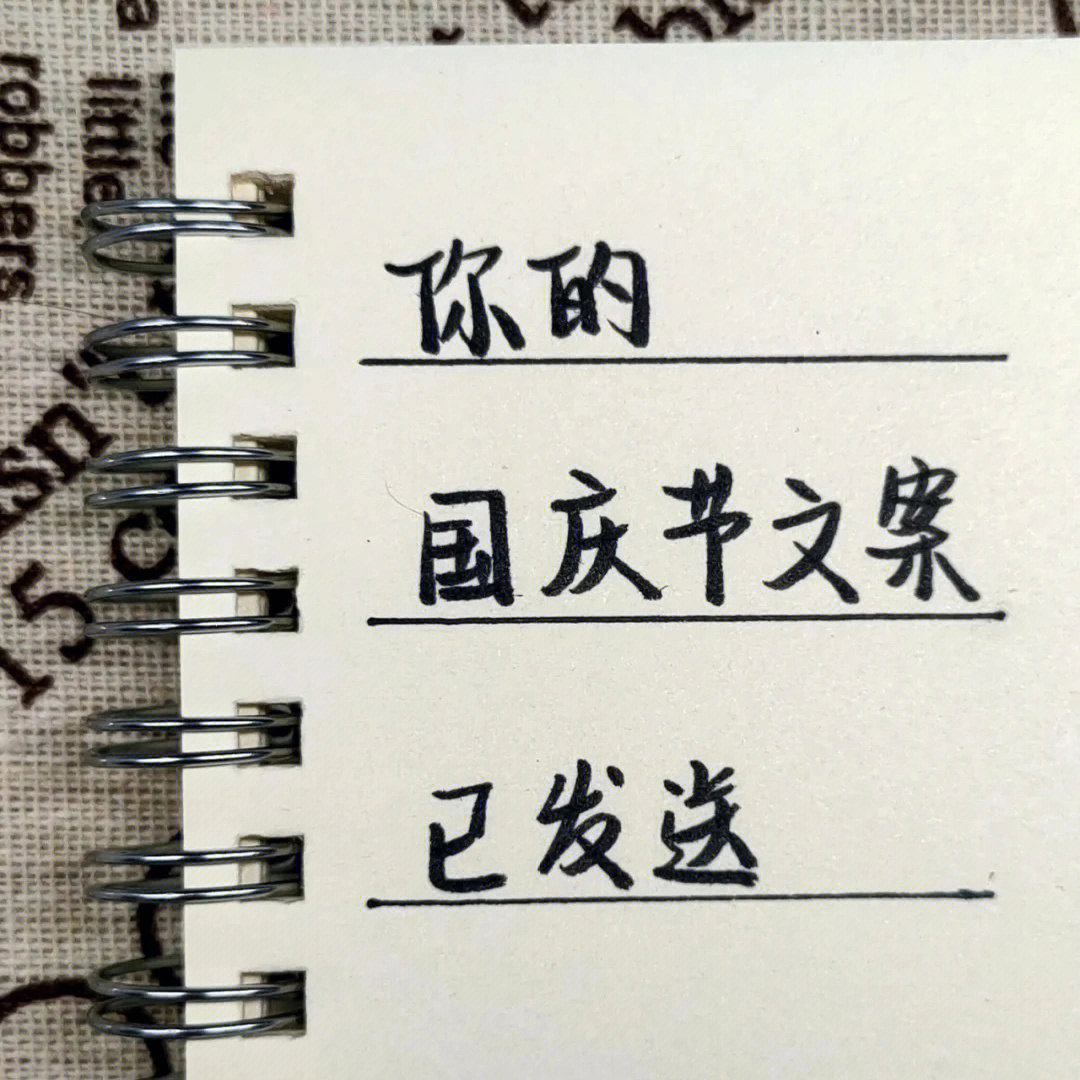 你的
国庆节文案
已发送
little
robbers
15